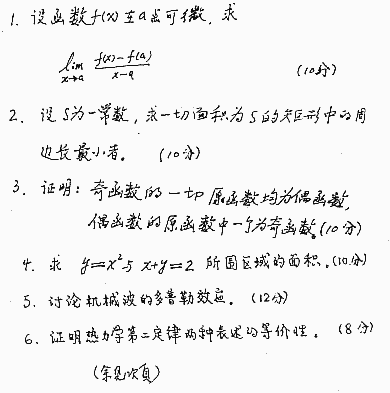 1. 设函数f(x)在a点可微,求
lim x→a f(x)-f(a) / x-a (10分)
2. 设S为一常数,求一切面积为S的矩形中的周
边长最小者。 (10分)
3. 证明:奇函数的一切原函数均为偶函数,
偶函数的原函数中一个为奇函数。(10分)
4. 求 y=x²与 x+y=2 所围区域的面积。(10分)
5. 讨论机械波的多普勒效应。 (12分)
6. 证明热力学第二定律两种表述的等价性。 (8分)
(余见次页)